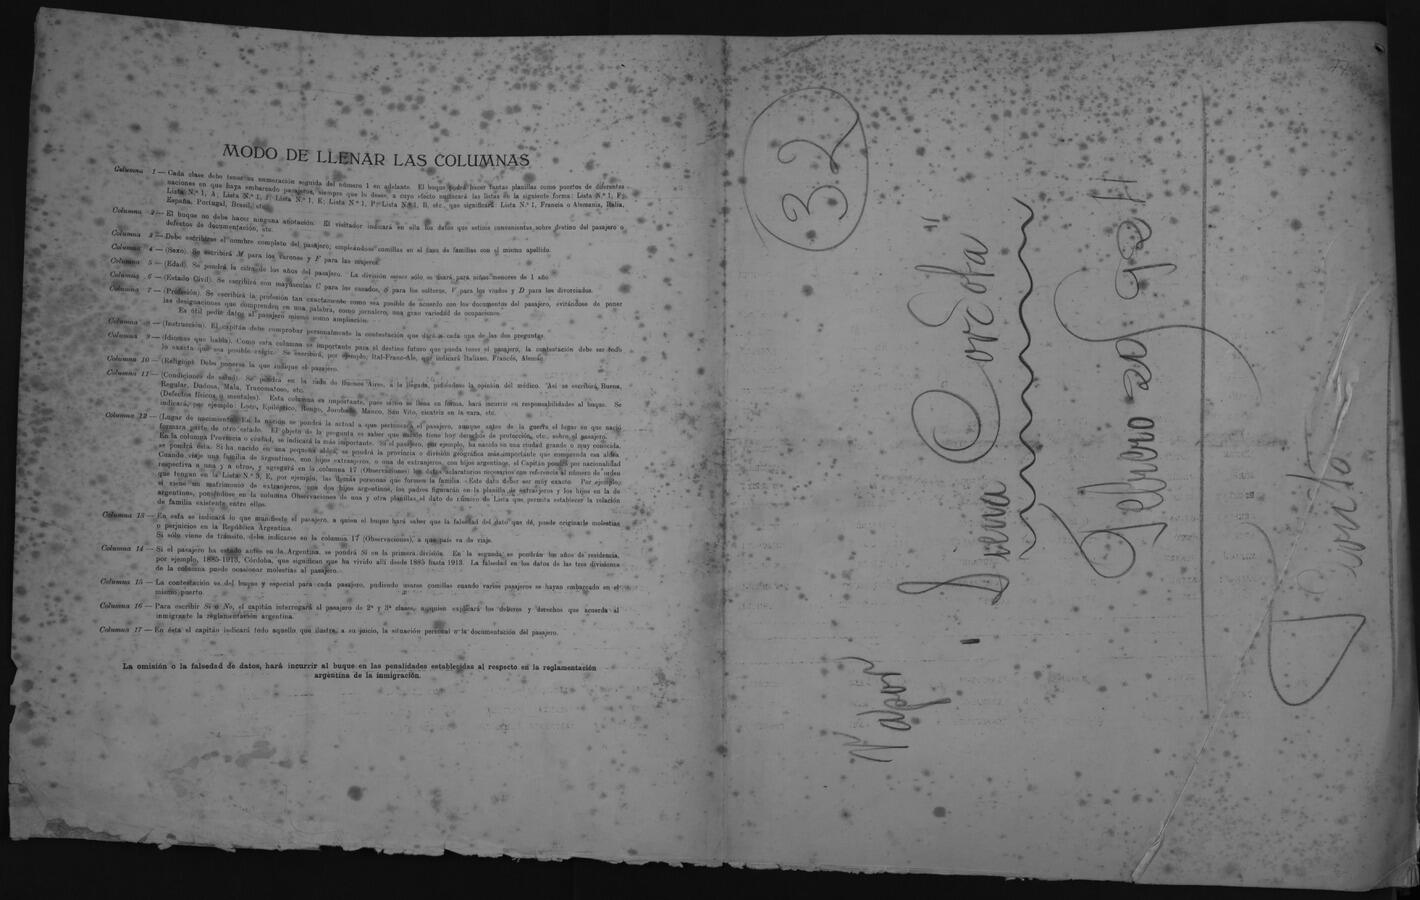 MODO DE LLENAR LAS COLUMNAS
Columna 1 — Cada clase debe tener su numeración seguida del número 1 en adelante. El buque podrá hacer tantas planillas como puertos de diferentes
naciones en que haya embarcado pasajeros, siempre que lo desee, a cuyo efecto numerará las listas en la siguiente forma: Lista N.º 1, F;
Lista N.º 1, A; Lista N.º 1, I; Lista N.º 1, E; Lista N.º 1, P; Lista N.º 1, B, etc., que significará: Lista N.º 1, Francia o Alemania, Italia,
España, Portugal, Brasil, etc.
Columna 2 — El buque no debe hacer ninguna anotación. El visitador indicará en ella los datos que estime convenientes sobre destino del pasajero o
defectos de documentación, etc.
Columna 3 — Debe escribirse el nombre completo del pasajero, empleándose comillas en el caso de familias con el mismo apellido.
Columna 4 — (Sexo). Se escribirá M para los varones y F para las mujeres.
Columna 5 — (Edad). Se pondrá la cifra de los años del pasajero. La división meses sólo se usará para niños menores de 1 año.
Columna 6 — (Estado Civil). Se escribirá con mayúsculas C para los casados, S para los solteros, V para los viudos y D para los divorciados.
Columna 7 — (Profesión). Se escribirá la profesión tan exactamente como sea posible de acuerdo con los documentos del pasajero, evitándose de poner
las designaciones que comprenden en una palabra, como jornalero, una gran variedad de ocupaciones.
Es útil pedir datos al pasajero mismo como ampliación.
Columna 8 — (Instrucción). El capitán debe comprobar personalmente la contestación que dará a cada una de las dos preguntas.
Columna 9 — (Idiomas que habla). Como esta columna es importante para el destino futuro que pueda tener el pasajero, la contestación debe ser todo
lo exacta que sea posible exigir. Se escribirá, por ejemplo, Ital-Franc-Ale, que indicará Italiano, Francés, Alemán.
Columna 10 — (Religión). Debe ponerse la que indique el pasajero.
Columna 11 — (Condiciones de salud). Se pondrá en la rada de Buenos Aires, a la llegada, pidiéndose la opinión del médico. Así se escribirá, Buena,
Regular, Dudosa, Mala, Tracomatoso, etc.
(Defectos físicos o mentales). Esta columna es importante, pues si no se llena en forma, hará incurrir en responsabilidades al buque. Se
indicará, por ejemplo: Loco, Epiléptico, Rengo, Jorobado, Manco, San Vito, cicatriz en la cara, etc.
Columna 12 — (Lugar de nacimiento). En la nación se pondrá la actual a que pertenezca el pasajero, aunque antes de la guerra el lugar en que nació
formara parte de otro estado. El objeto de la pregunta es saber qué nación tiene hoy derechos de protección, etc., sobre el pasajero.
En la columna Provincia o ciudad, se indicará la más importante. Si el pasajero, por ejemplo, ha nacido en una ciudad grande o muy conocida,
se pondrá ésta. Si ha nacido en una pequeña aldea, se pondrá la provincia o división geográfica más importante que comprenda esa aldea.
Cuando viaje una familia de argentinos, con hijos extranjeros, o una de extranjeros, con hijos argentinos, el Capitán pondrá por nacionalidad
respectiva a una y a otros, y agregará en la columna 17 (Observaciones) los datos aclaratorios necesarios con referencia al número de orden
que tengan en la Lista N.º 3, E, por ejemplo, las demás personas que formen la familia. Este dato deber ser muy exacto. Por ejemplo,
si viene un matrimonio de extranjeros, con dos hijos argentinos, los padres figurarán en la planilla de extranjeros y los hijos en la de
argentinos, poniéndose en la columna Observaciones de una y otra planillas, el dato de número de Lista que permita establecer la relación
de familia existente entre ellos.
Columna 13 — En esta se indicará lo que manifieste el pasajero, a quien el buque hará saber que la falsedad del dato que dé, puede originarle molestias
o perjuicios en la República Argentina.
Si sólo viene de tránsito, debe indicarse en la columna 17 (Observaciones), a que país va de viaje.
Columna 14 — Si el pasajero ha estado antes en la Argentina, se pondrá Sí en la primera división. En la segunda se pondrán los años de residencia,
por ejemplo, 1885-1913, Córdoba, que significan que ha vivido allí desde 1885 hasta 1913. La falsedad en los datos de las tres divisiones
de la columna puede ocasionar molestias al pasajero.
Columna 15 — La contestación es del buque y especial para cada pasajero, pudiendo usarse comillas cuando varios pasajeros se hayan embarcado en el
mismo puerto.
Columna 16 — Para escribir Sí o No, el capitán interrogará al pasajero de 2ª y 3ª clases, a quien explicará los deberes y derechos que acuerda al
inmigrante la reglamentación argentina.
Columna 17 — En ésta el capitán indicará todo aquello que ilustre, a su juicio, la situación personal o la documentación del pasajero.
La omisión o la falsedad de datos, hará incurrir al buque en las penalidades establecidas al respecto en la reglamentación
argentina de la inmigración.
32
Vapor
" Sierra Cordoba "
Febrero 20/924